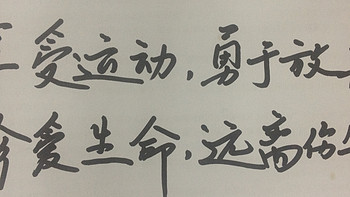 受运动,勇于放
爱生命,远离伤